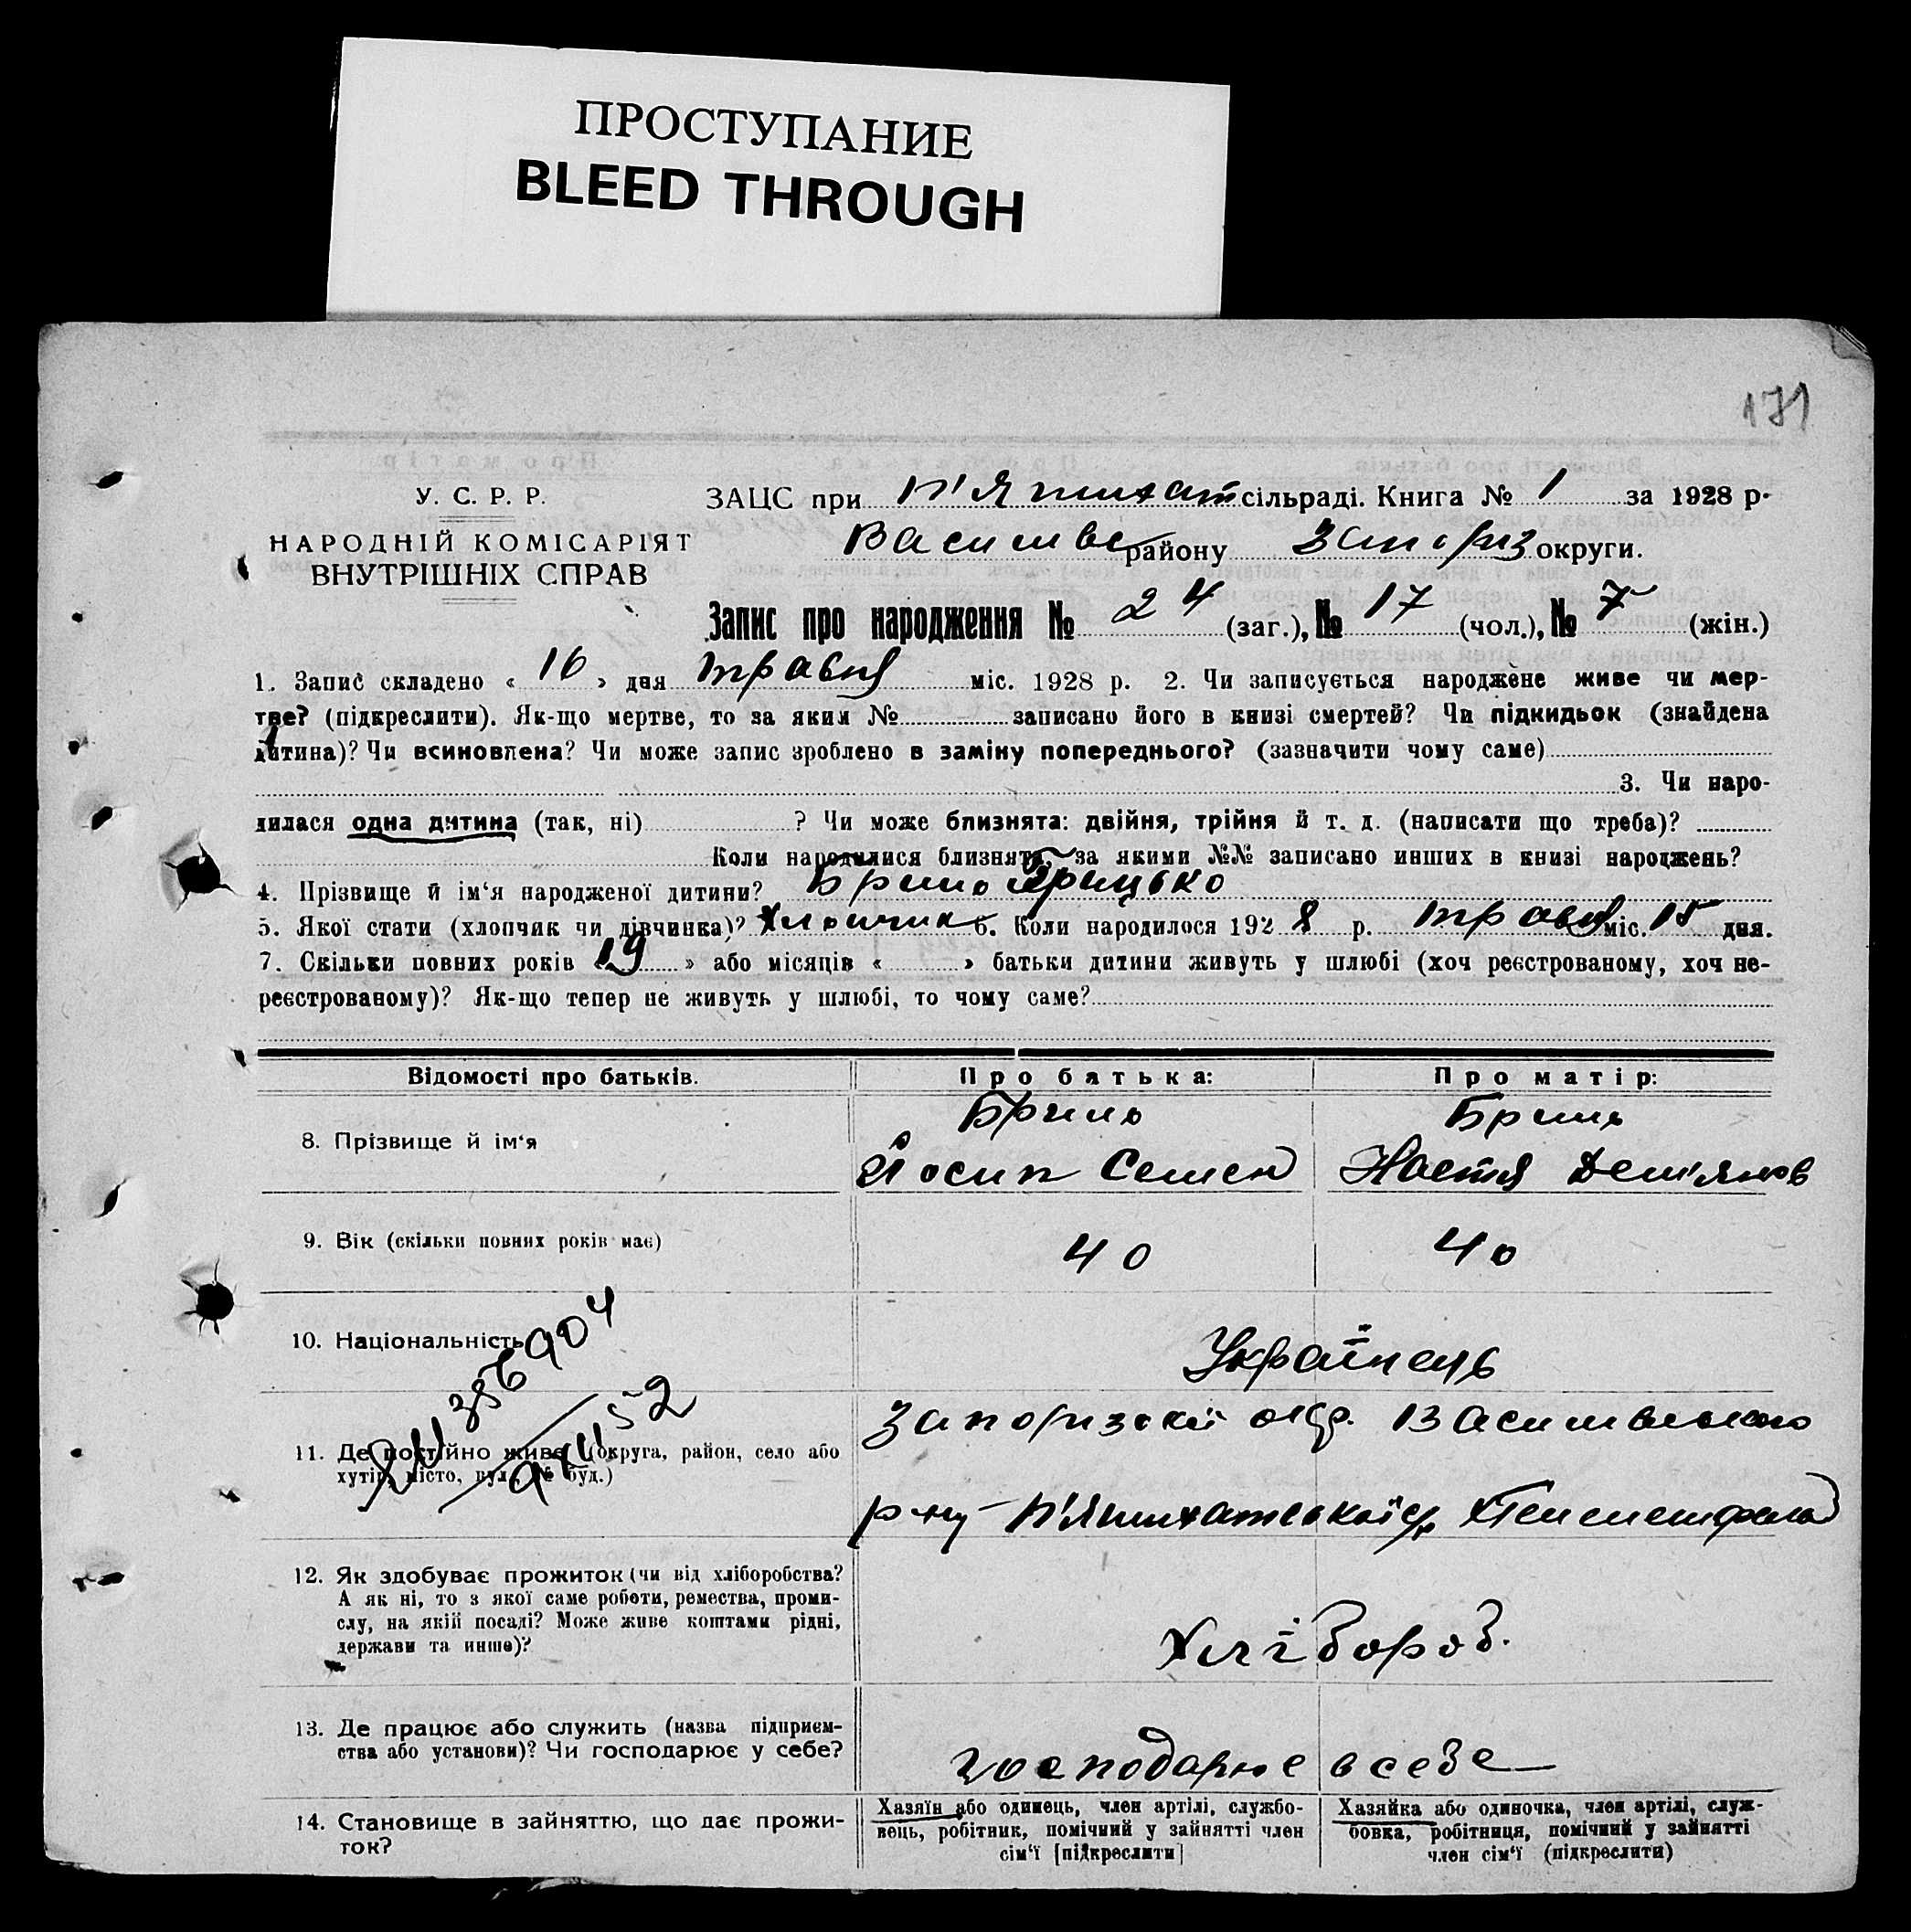 ПРОСТУПАНИЕ
BLEED THROUGH
171
У. С. Р. Р.
НАРОДНІЙ КОМІСАРІЯТ
ВНУТРІШНІХ СПРАВ
ЗАЦС при П'ятихат сільраді. Книга № 1 за 1928 р.
Василівс району Запоріз округи.
Запис про народження № 24 (заг.), № 17 (чол.), № 7 (жін.)
1. Запис складено « 16 » дня травня міс. 1928 р. 2. Чи записується народжене живе чи мер-
тве? (підкреслити). Як-що мертве, то за яким № записано його в книзі смертей? Чи підкидьок (знайдена
дитина)? Чи всиновлена? Чи може запис зроблено в заміну попереднього? (зазначити чому саме)
3. Чи наро-
дилася одна дитина (так, ні) ? Чи може близнята: двійня, трійня й т. д. (написати що треба)?
Коли народилися близнята, за якими №№ записано инших в книзі народжень?
4. Прізвище й ім‘я народженої дитини? Бриль Грицько
5. Якої стати (хлопчик чи дівчинка)? Хлопчик 6. Коли народилося 1928 р. травня міс. 15 дня.
7. Скільки повних років « 19 » або місяців « » батьки дитини живуть у шлюбі (хоч реєстрованому, хоч не-
реєстрованому)? Як-що тепер не живуть у шлюбі, то чому саме?
Відомості про батьків. Про батька: Про матір:
8. Прізвище й ім‘я
Бриль
Йосип Семен
Бриль
Настя Дем'янов
9. Вік (скільки повних років має) 40 40
10. Національність Українець
11. Де постійно живе (округа, район, село або
хутір, місто, вул., № буд.)
Запорізької окр. Василівського
р-ну П'ятихатської с/р
12. Як здобуває прожиток (чи від хліборобства?
А як ні, то з якої саме роботи, ремества, проми-
слу, на якій посаді? Може живе коштами рідні,
держави та инше)?
Хлібороб.
13. Де працює або служить (назва підприєм-
ства або установи)? Чи господарює у себе?
господарює в себе
14. Становище в зайняттю, що дає прожи-
ток?
Хазяїн або одинець, член артілі, службо-
вець, робітник, помічний у зайнятті член
сім‘ї [підкреслити]
Хазяйка або одиночка, член артілі, служ-
бовка, робітниця, помічний у зайнятті
член сім‘ї (підкреслити)